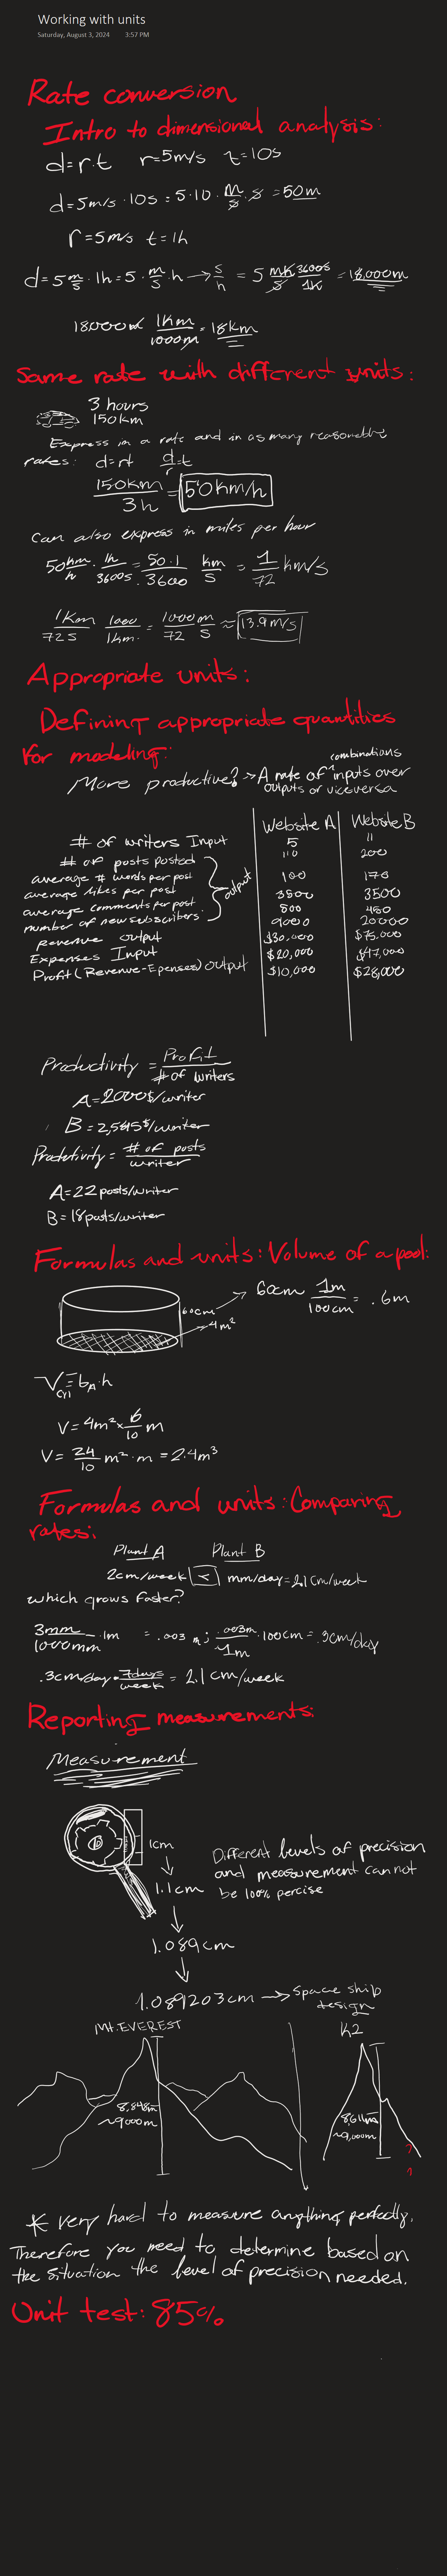 Working with units
Saturday, August 3, 2024 3:57 PM
Rate conversion
Intro to dimensional analysis:
d=r.t r=5m/s t=10s
d=5m/s · 10s = 5·10 · m/s · s = 50m
r=5m/s t=1h
d=5 m/s · 1h = 5 · m/s · h → s/h = 5 mh/s 3600s/1h = 18,000m
18,000m 1Km/1000m = 18km
Same rate with different units:
3 hours
150km
Express in a rate and in as many reasonable
rates: d=rt d/r=t
150km/3h = 50km/h
Can also express in miles per hour
50km/h · 1h/3600s = 50·1/3600 km/s = 1/72 km/s
1Km/72s 1000/1km. = 1000/72 m/s ≈ 13.9m/s
Appropriate units:
Defining appropriate quantities
for modeling:
More productive? → A rate of combinations inputs over
outputs or viceversa
Website A Website B
# of writers Input 5 11
# of posts posted 110 200
average # words per post 100 170
average likes per post 3500 3500
average comments per post 800 450
number of new subscribers: 9000 20000
output
Revenue output $30,000 $75,000
Expenses Input $20,000 $47,000
Profit (Revenue-Epenses) output $10,000 $28,000
Productivity = Profit/# of writers
A=2000$/writer
B = 2,545$/writer
Productivity = # of posts/writer
A=22 posts/writer
B=18posts/writer
Formulas and units: Volume of a pool:
60cm → 60cm 1m/100cm = .6m
4m²
Vcyl = bA·h
V = 4m² × 6/10 m
V = 24/10 m² · m = 2.4m³
Formulas and units: Comparing
rates:
Plant A Plant B
2cm/week < mm/day = 2.1 cm/week
which grows faster?
3mm/1000mm · 1m = .003 m; .003m/1m · 100cm = .3cm/day
.3cm/day · 7days/week = 2.1 cm/week
Reporting measurements:
Measurement
1cm
1.1cm
Different levels of precision
and measurement can not
be 100% percise
1.089cm
1.089203cm → Space ship
design
Mt.EVEREST K2
8,848m 8,611m
~9000m ~9,000m
* Very hard to measure anything perfectly.
Therefore you need to determine based on
the situation the level of precision needed.
Unit test: 85%